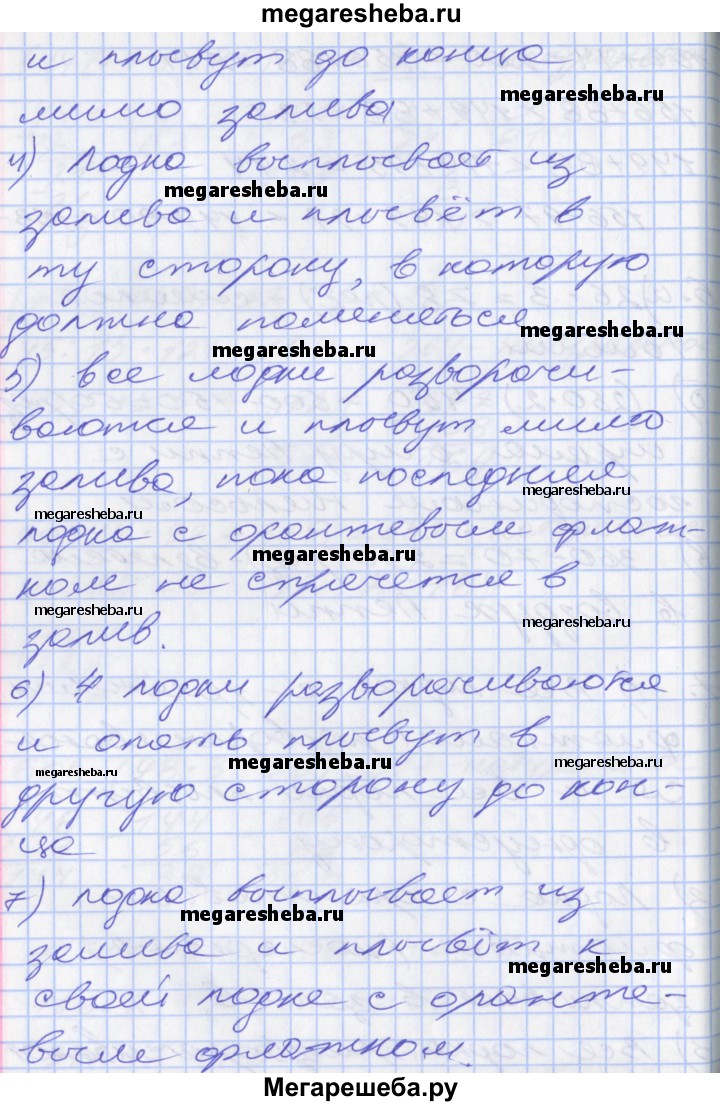 megaresheba.ru
и плывут до конца
megaresheba.ru
мимо залива
4) Лодка выплывает из
megaresheba.ru
залива и плывёт в
megaresheba.ru
ту сторону, в которую
должна поменяться
megaresheba.ru
megaresheba.ru
5) все лодки разворачи-
ваются и плывут мимо
залива, пока последняя
megaresheba.ru
megaresheba.ru
лодка с оранжевым флаж-
megaresheba.ru
ком не спрячется в
megaresheba.ru
megaresheba.ru
залив.
6) 4 лодки разворачиваются
и опять плывут в
megaresheba.ru
megaresheba.ru
megaresheba.ru
другую сторону до кон-
ца
7) лодка выплывает из
megaresheba.ru
залива и плывёт к
megaresheba.ru
своей лодке с оранже-
вым флажком.
Мегарешеба.ру